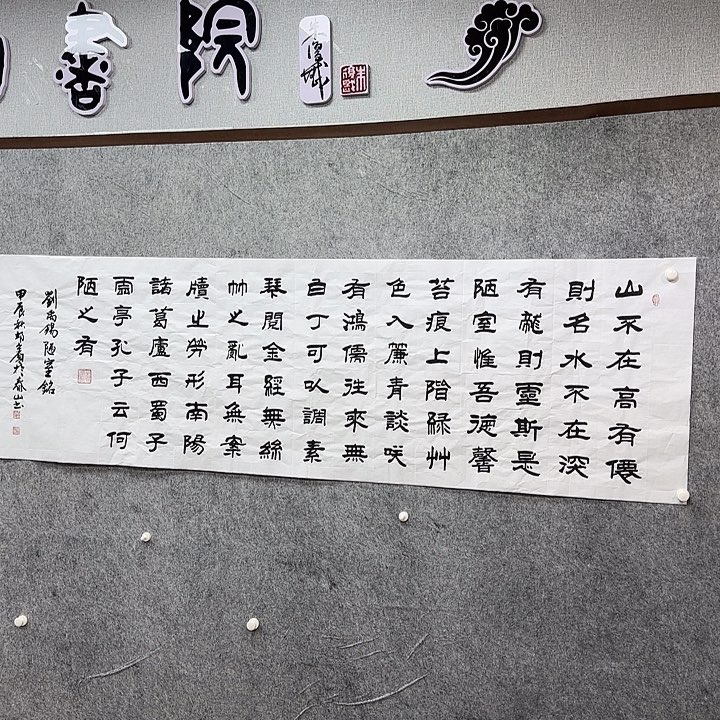 書院
朱復戡
山不在高有僊
則名水不在深
有龍則靈斯是
陋室惟吾德馨
苔痕上階緑艸
色入簾青談咲
有鴻儒往來無
白丁可㕥調素
琴閱金經無絲
竹之亂耳無案
牘之勞形南陽
諸葛廬西蜀子
雲亭孔子云何
陋之有
劉禹錫陋室銘
甲辰秋書於泰山